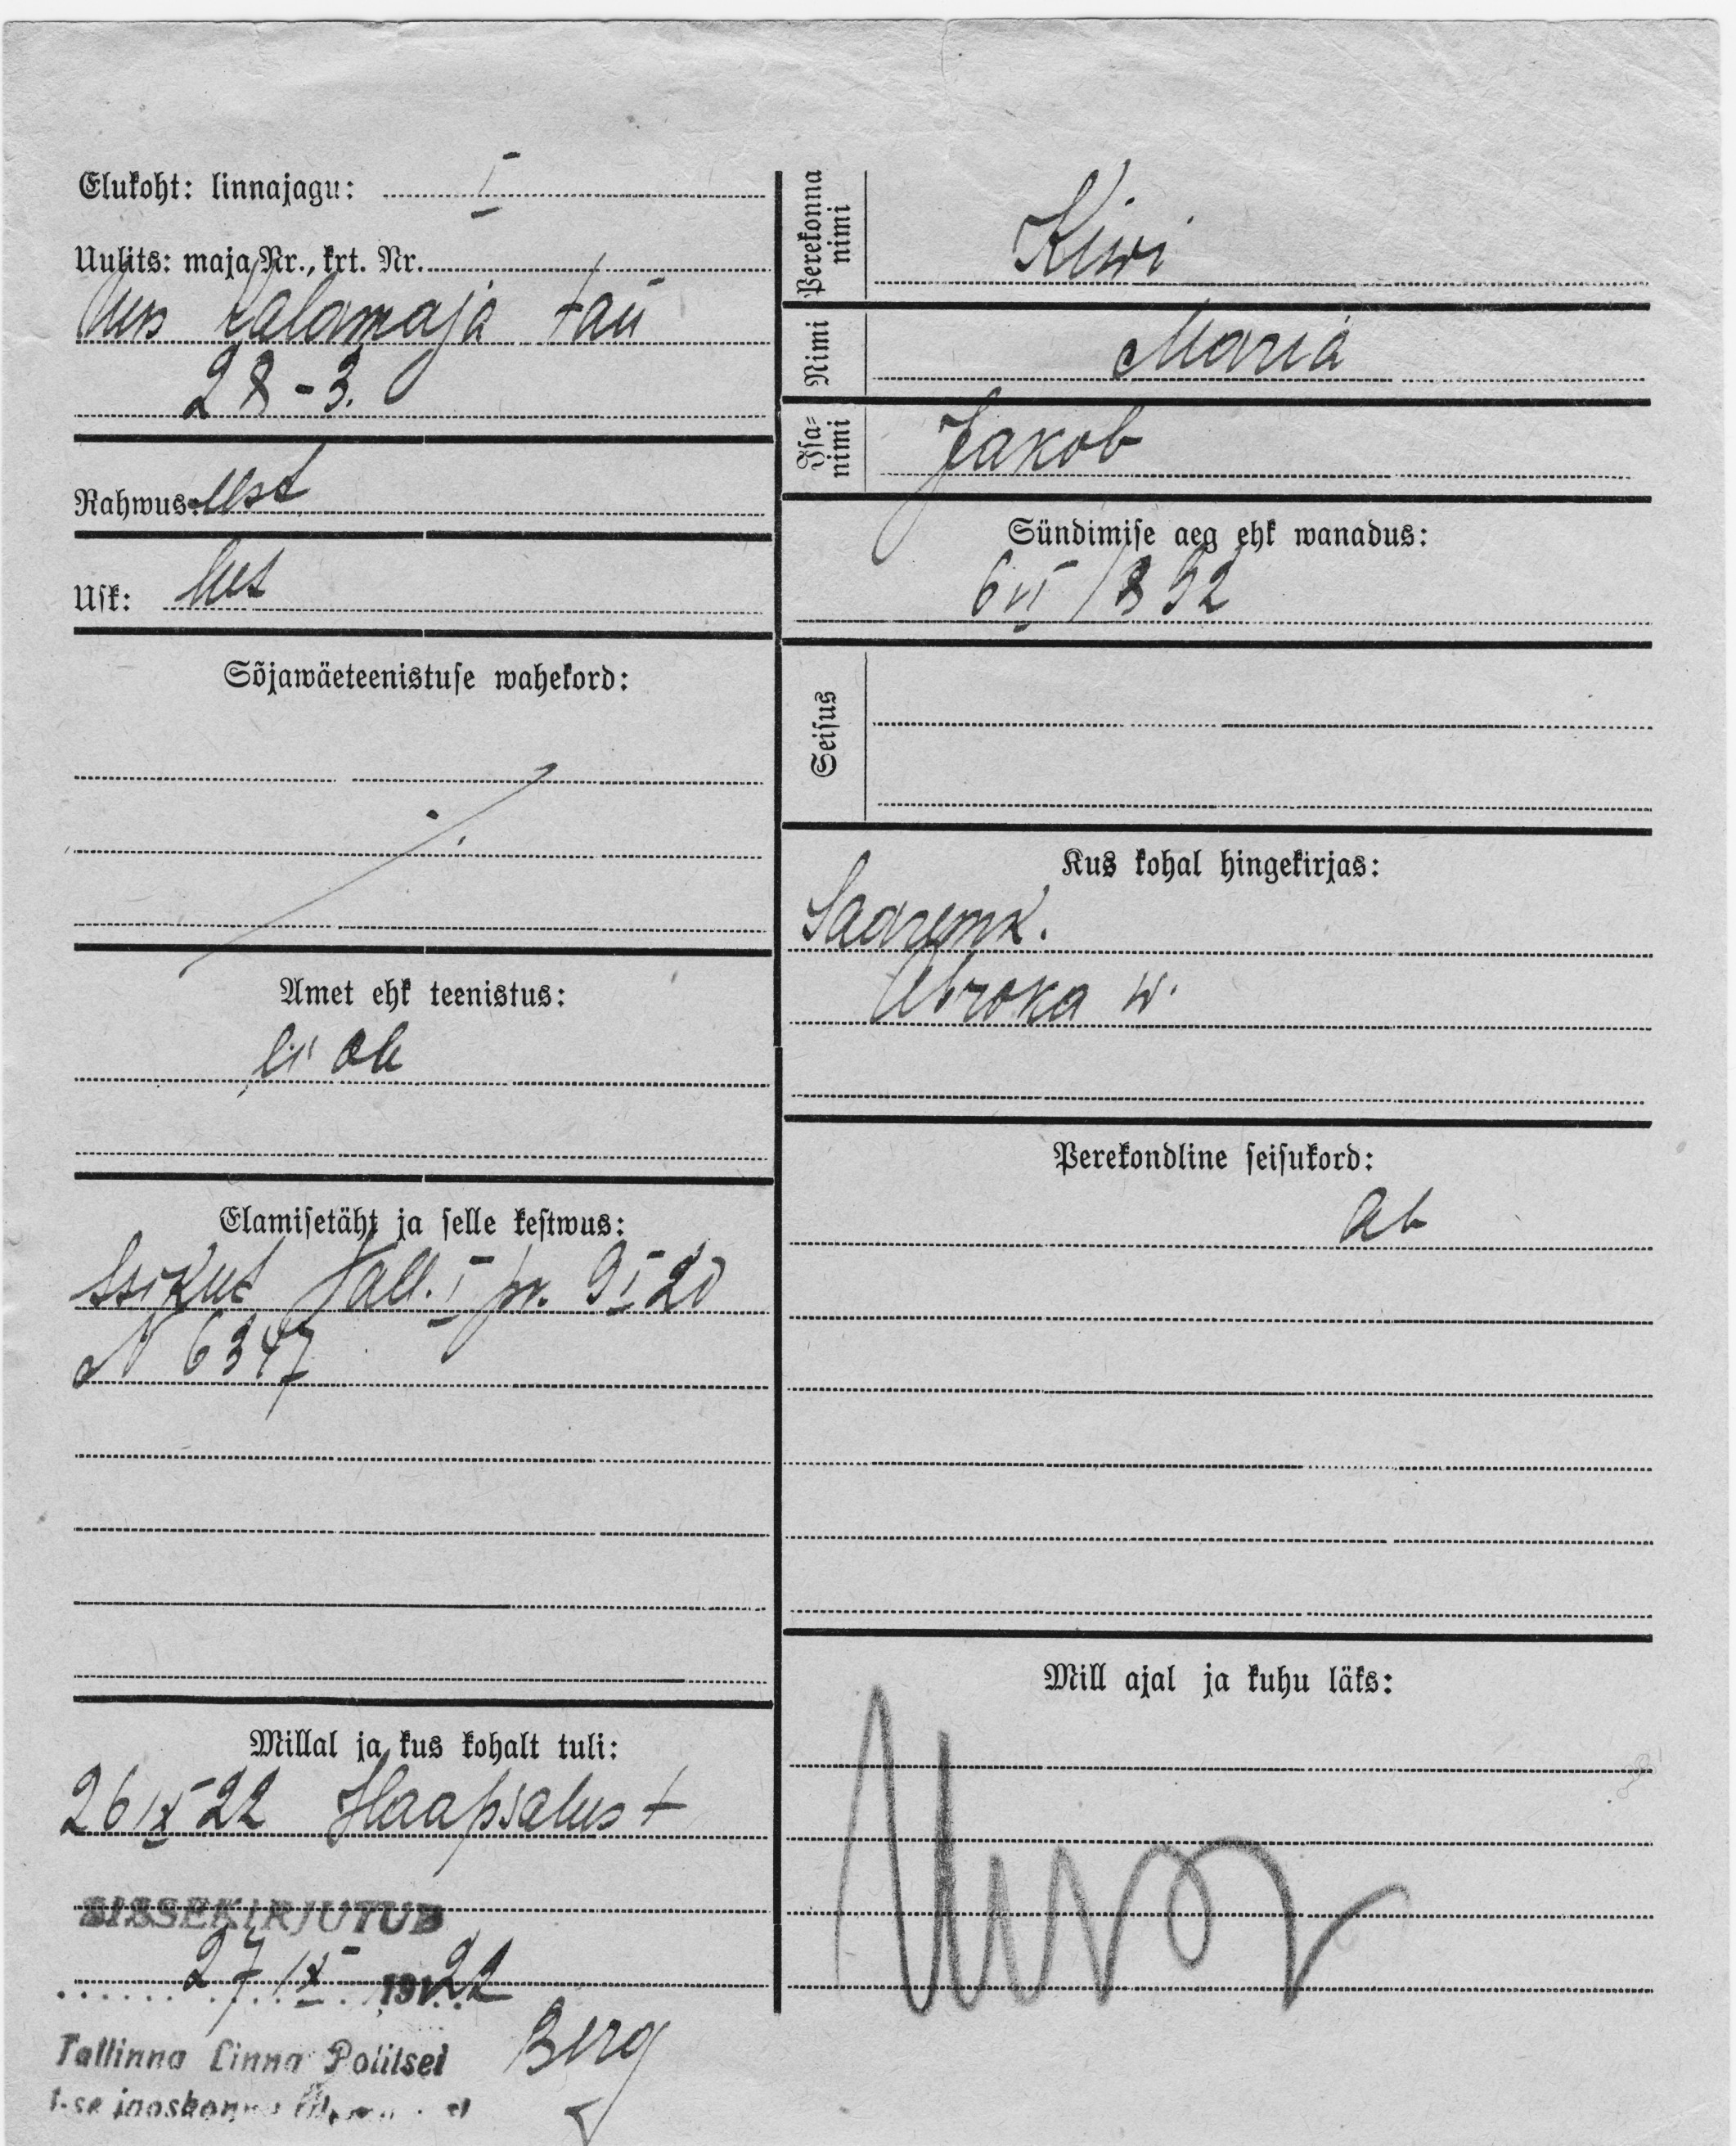 Elukoht: linnajagu: I
Uulits: maja Nr., krt. Nr.
Uus Kalamaja tän
28-3.
Rahwus: est
Usk: lut
Sõjawäeteenistuse wahekord:
Amet ehk teenistus:
ei ole
Elamisetäht ja selle kestwus:
Isikut Tall. I pr. 9 I 20
N 6347
Millal ja kus kohalt tuli:
26 IX 22 Haapsalust
SISSEKIRJUTUD
27 IX 1922
Tallinna Linna Politsei
1-se jaoskonna
Berg
Perekonna
nimi
Kiwi
Nimi
Maria
Isa-
nimi
Jakob
Sündimise aeg ehk wanadus:
6 VI 1892
Seisus
Kus kohal hingekirjas:
Saaremk.
Abroka w.
Perekondline seisukord:
ab
Mill ajal ja kuhu läks: